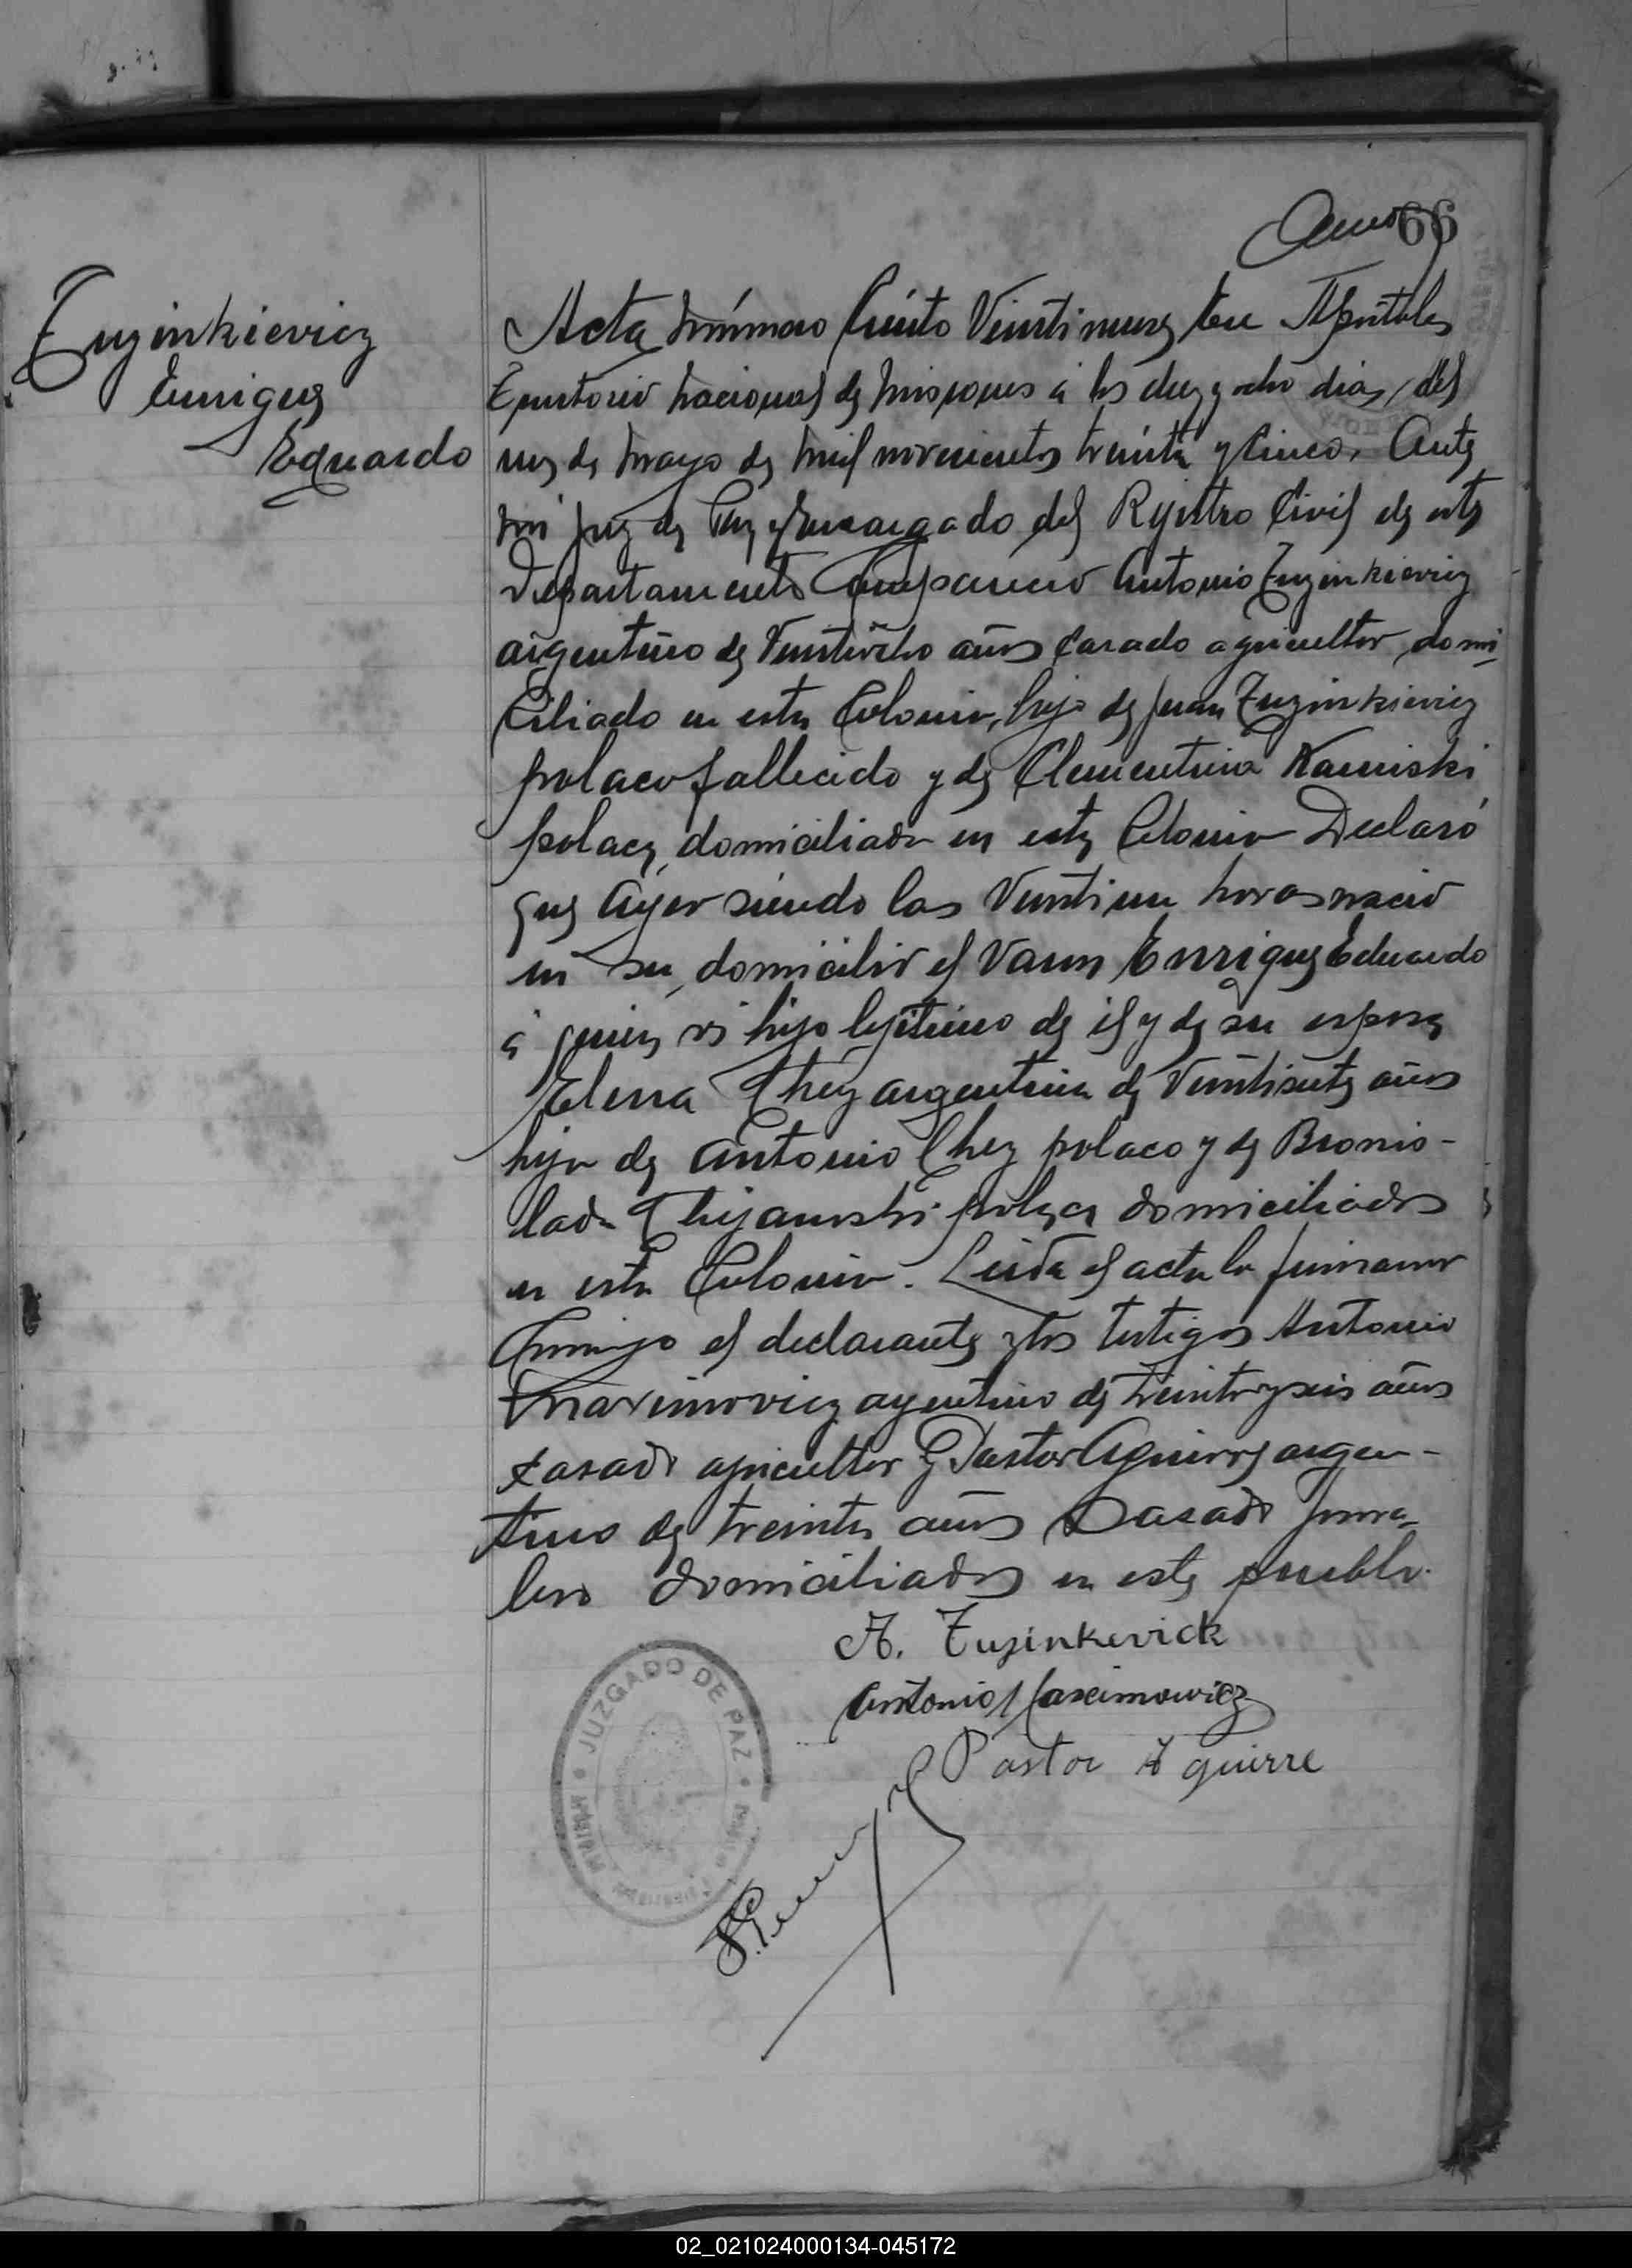 66
Tuzinkievicz
Enrique
Eduardo
Acta número Ciento Veintinueve En Apóstoles
Territorio Nacional de Misiones á los diez y ocho dias del
mes de Mayo de mil novecientos treinta y cinco. Ante
mi Juez de Paz y Encargado del Rejistro Civil de este
Departamento Compareció Antonio Tuzinkievicz
argentino de Veintiocho años casado agricultor domi-
ciliado en esta Colonia, hijo de Juan Tuzinkievicz
polaco fallecido y de Clementina Kaminski
polaca, domiciliada en esta Colonia Declaró
que Ayer siendo las Veintiun horas nació
en su domicilio el Varon Enrique Eduardo
á quien es hijo lejitimo de él y de su esposa
Elena Chez argentina de Veintisiete años
hija de Antonio Chez polaco y de Bronis-
lada polaca domiciliados
en esta Colonia. Leida el acta la firmaron
Conmigo el declarante y los testigos Antonio
Maximovicz argentino de treinta y seis años
casado agricultor y Pastor Aguirre argen-
tino de treinta años casado jorna-
lero domiciliados en este pueblo.
A. Tuzinkevick
Antonio Maximowicz
Pastor Aguirre
JUZGADO DE PAZ
02_021024000134-045172